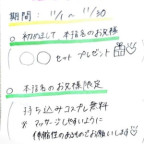 期間：11/1～11/30
○ 初めまして 本指名のお客様
○○セットプレゼント
○ 本指名のお客様限定
持ち込みコスプレ無料
※マッサージしやすいように
伸縮性のあるものでお願いします